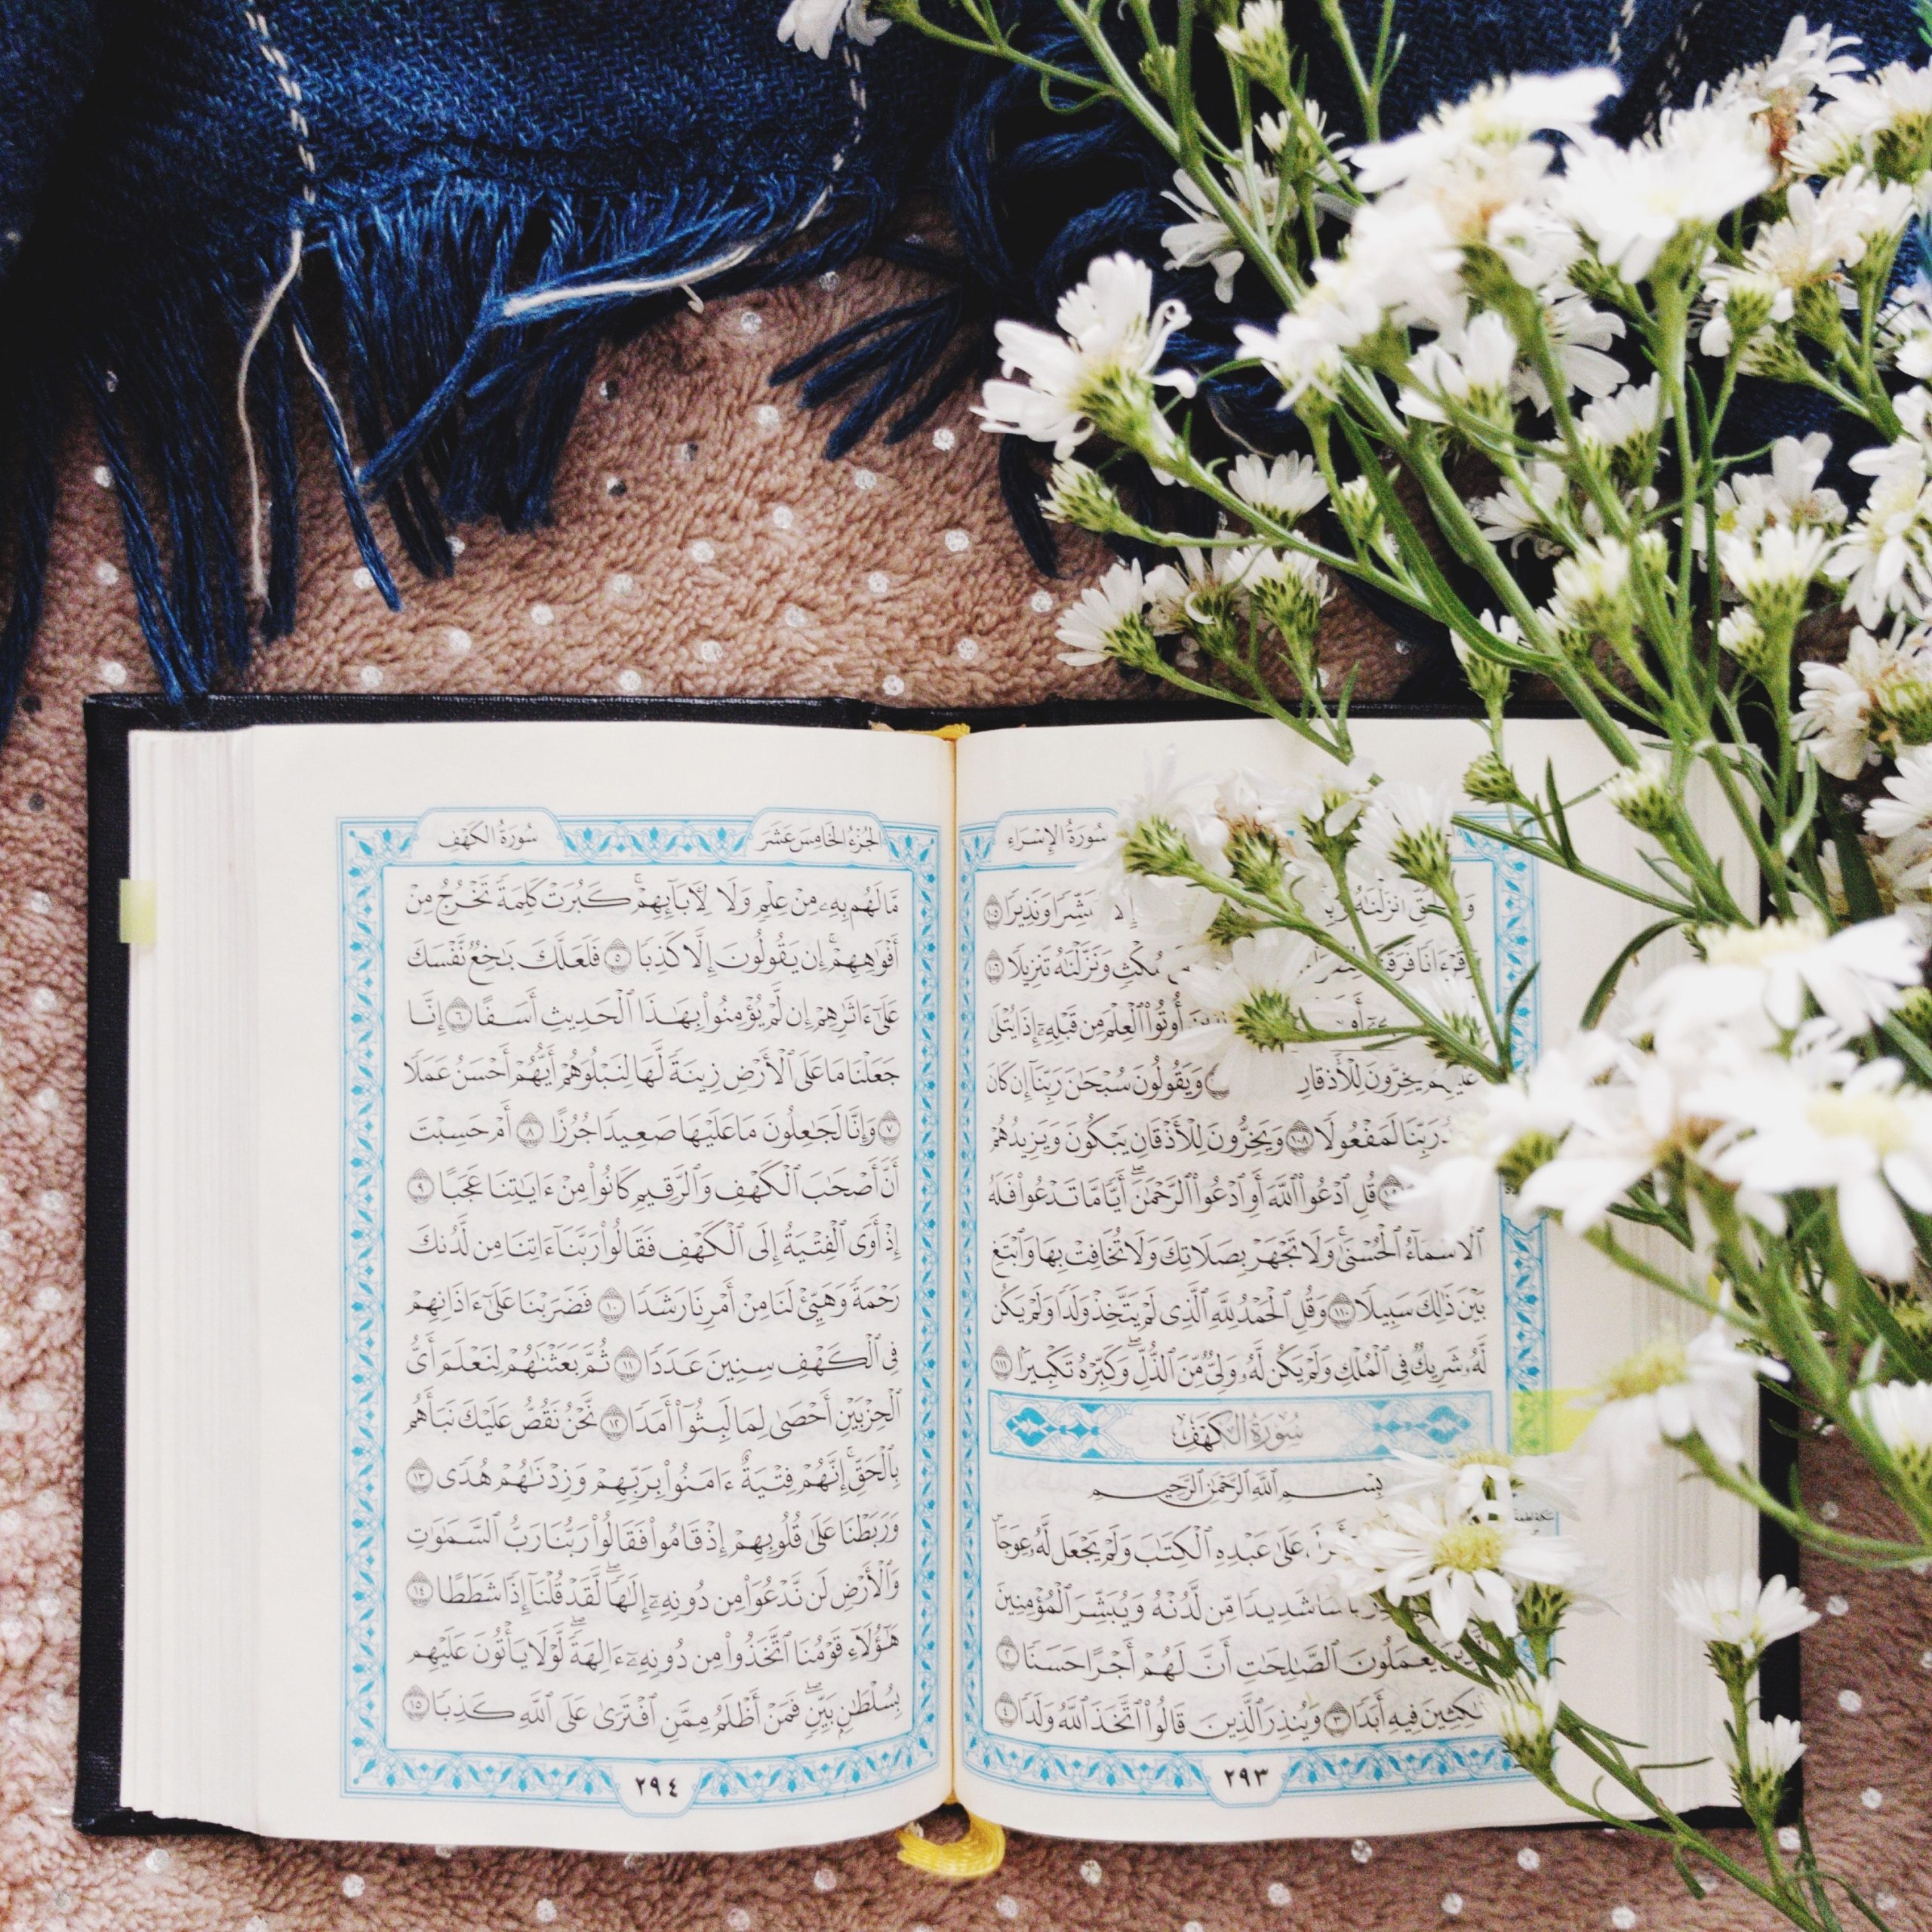 سُورَةُ الإِسْرَاءِ
أَنزَلْنَٰهُ مُبَشِّرًا وَنَذِيرًا ١٠٥
مُكْثٍ وَنَزَّلْنَٰهُ تَنزِيلًا ١٠٦
أُوتُوا۟ ٱلْعِلْمَ مِن قَبْلِهِۦٓ إِذَا يُتْلَىٰ
عَلَيْهِمْ يَخِرُّونَ لِلْأَذْقَانِ وَيَقُولُونَ سُبْحَٰنَ رَبِّنَآ إِن كَانَ
رَبِّنَا لَمَفْعُولًا ١٠٨ وَيَخِرُّونَ لِلْأَذْقَانِ يَبْكُونَ وَيَزِيدُهُمْ
قُلِ ٱدْعُوا۟ ٱللَّهَ أَوِ ٱدْعُوا۟ ٱلرَّحْمَٰنَ ۖ أَيًّا مَّا تَدْعُوا۟ فَلَهُ
ٱلْأَسْمَآءُ ٱلْحُسْنَىٰ ۚ وَلَا تَجْهَرْ بِصَلَاتِكَ وَلَا تُخَافِتْ بِهَا وَٱبْتَغِ
بَيْنَ ذَٰلِكَ سَبِيلًا ١١٠ وَقُلِ ٱلْحَمْدُ لِلَّهِ ٱلَّذِى لَمْ يَتَّخِذْ وَلَدًا وَلَمْ يَكُن
لَّهُۥ شَرِيكٌ فِى ٱلْمُلْكِ وَلَمْ يَكُن لَّهُۥ وَلِىٌّ مِّنَ ٱلذُّلِّ ۖ وَكَبِّرْهُ تَكْبِيرًۢا ١١١
سُورَةُ الكَهْفِ
بِسْمِ ٱللَّهِ ٱلرَّحْمَٰنِ ٱلرَّحِيمِ
عَلَىٰ عَبْدِهِ ٱلْكِتَٰبَ وَلَمْ يَجْعَل لَّهُۥ عِوَجَا
بَأْسًا شَدِيدًا مِّن لَّدُنْهُ وَيُبَشِّرَ ٱلْمُؤْمِنِينَ
ٱلَّذِينَ يَعْمَلُونَ ٱلصَّٰلِحَٰتِ أَنَّ لَهُمْ أَجْرًا حَسَنًا ٢
مَّٰكِثِينَ فِيهِ أَبَدًا ٣ وَيُنذِرَ ٱلَّذِينَ قَالُوا۟ ٱتَّخَذَ ٱللَّهُ وَلَدًا ٤
٢٩٣
الجُزْءُ الخَامِسَ عَشَرَ
سُورَةُ الكَهْفِ
مَّا لَهُم بِهِۦ مِنْ عِلْمٍ وَلَا لِءَابَآئِهِمْ ۚ كَبُرَتْ كَلِمَةً تَخْرُجُ مِنْ
أَفْوَٰهِهِمْ ۚ إِن يَقُولُونَ إِلَّا كَذِبًا ٥ فَلَعَلَّكَ بَٰخِعٌ نَّفْسَكَ
عَلَىٰٓ ءَاثَٰرِهِمْ إِن لَّمْ يُؤْمِنُوا۟ بِهَٰذَا ٱلْحَدِيثِ أَسَفًا ٦ إِنَّا
جَعَلْنَا مَا عَلَى ٱلْأَرْضِ زِينَةً لَّهَا لِنَبْلُوَهُمْ أَيُّهُمْ أَحْسَنُ عَمَلًا
٧ وَإِنَّا لَجَٰعِلُونَ مَا عَلَيْهَا صَعِيدًا جُرُزًا ٨ أَمْ حَسِبْتَ
أَنَّ أَصْحَٰبَ ٱلْكَهْفِ وَٱلرَّقِيمِ كَانُوا۟ مِنْ ءَايَٰتِنَا عَجَبًا ٩
إِذْ أَوَى ٱلْفِتْيَةُ إِلَى ٱلْكَهْفِ فَقَالُوا۟ رَبَّنَآ ءَاتِنَا مِن لَّدُنكَ
رَحْمَةً وَهَيِّئْ لَنَا مِنْ أَمْرِنَا رَشَدًا ١٠ فَضَرَبْنَا عَلَىٰٓ ءَاذَانِهِمْ
فِى ٱلْكَهْفِ سِنِينَ عَدَدًا ١١ ثُمَّ بَعَثْنَٰهُمْ لِنَعْلَمَ أَىُّ
ٱلْحِزْبَيْنِ أَحْصَىٰ لِمَا لَبِثُوٓا۟ أَمَدًا ١٢ نَّحْنُ نَقُصُّ عَلَيْكَ نَبَأَهُم
بِٱلْحَقِّ ۚ إِنَّهُمْ فِتْيَةٌ ءَامَنُوا۟ بِرَبِّهِمْ وَزِدْنَٰهُمْ هُدًى ١٣
وَرَبَطْنَا عَلَىٰ قُلُوبِهِمْ إِذْ قَامُوا۟ فَقَالُوا۟ رَبُّنَا رَبُّ ٱلسَّمَٰوَٰتِ
وَٱلْأَرْضِ لَن نَّدْعُوَا۟ مِن دُونِهِۦٓ إِلَٰهًا ۖ لَّقَدْ قُلْنَآ إِذًا شَطَطًا ١٤
هَٰٓؤُلَآءِ قَوْمُنَا ٱتَّخَذُوا۟ مِن دُونِهِۦٓ ءَالِهَةً ۖ لَّوْلَا يَأْتُونَ عَلَيْهِم
بِسُلْطَٰنٍۭ بَيِّنٍ ۖ فَمَنْ أَظْلَمُ مِمَّنِ ٱفْتَرَىٰ عَلَى ٱللَّهِ كَذِبًا ١٥
٢٩٤